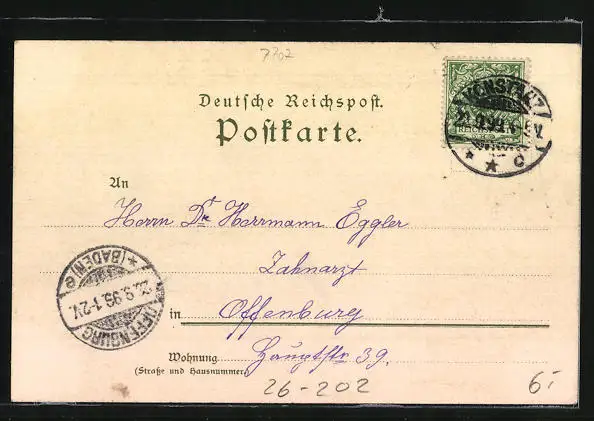 7702
Deutsche Reichspost.
Postkarte.
KONSTANZ
REICHSPOST
An
Herrn Dr. Herrmann Eggler
Zahnarzt
in Offenburg
Wohnung Hauptstr 39.
(Straße und Hausnummer)
OFFENBURG
* (BADEN) c
22.9.99.1-2V.
26-202
6.-